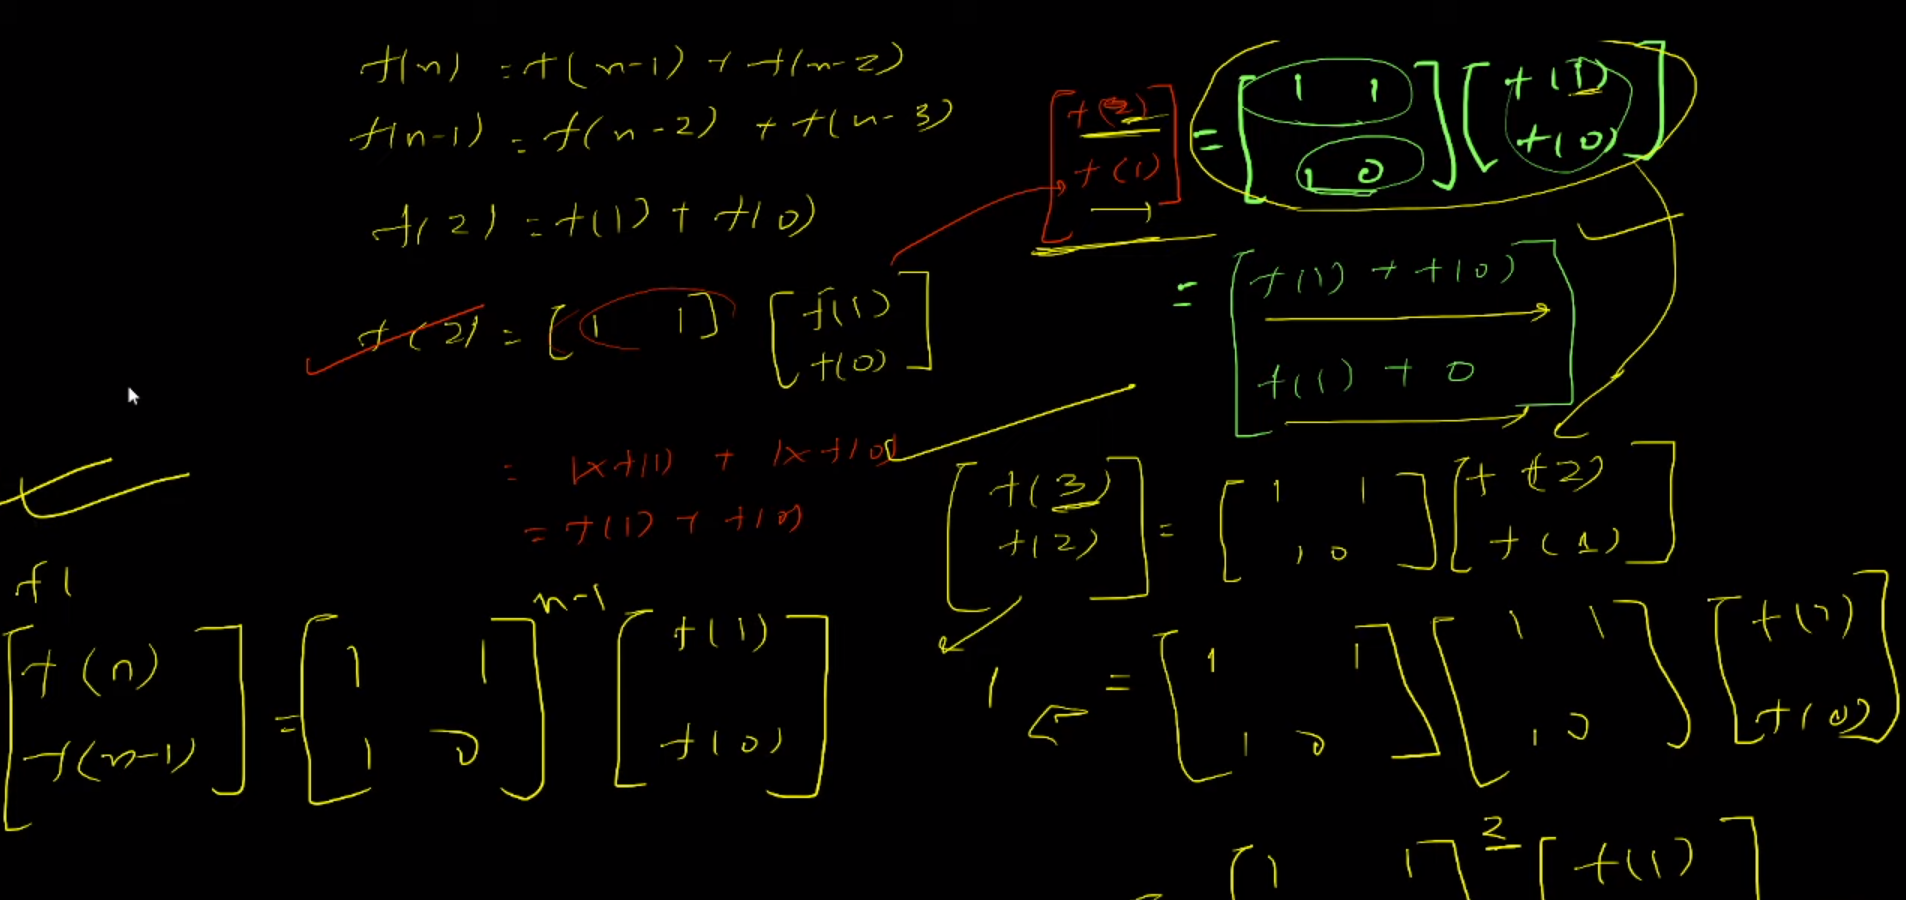 f(n) = f(n-1) + f(n-2)
f(n-1) = f(n-2) + f(n-3)
f(2) = f(1) + f(0)
f(2) = [1 1] [f(1)
f(0)]
= 1×f(1) + 1×f(0)
= f(1) + f(0)
[f(2)
f(1)] = [1 1
1 0] [f(1)
f(0)]
= [f(1) + f(0)
f(1) + 0]
[f(3)
f(2)] = [1 1
1 0] [f(2)
f(1)]
= [1 1
1 0] [1 1
1 0] [f(1)
f(0)]
[1 1]² [f(1)
f1
[f(n)
f(n-1)] = [1 1
1 0]ⁿ⁻¹ [f(1)
f(0)]